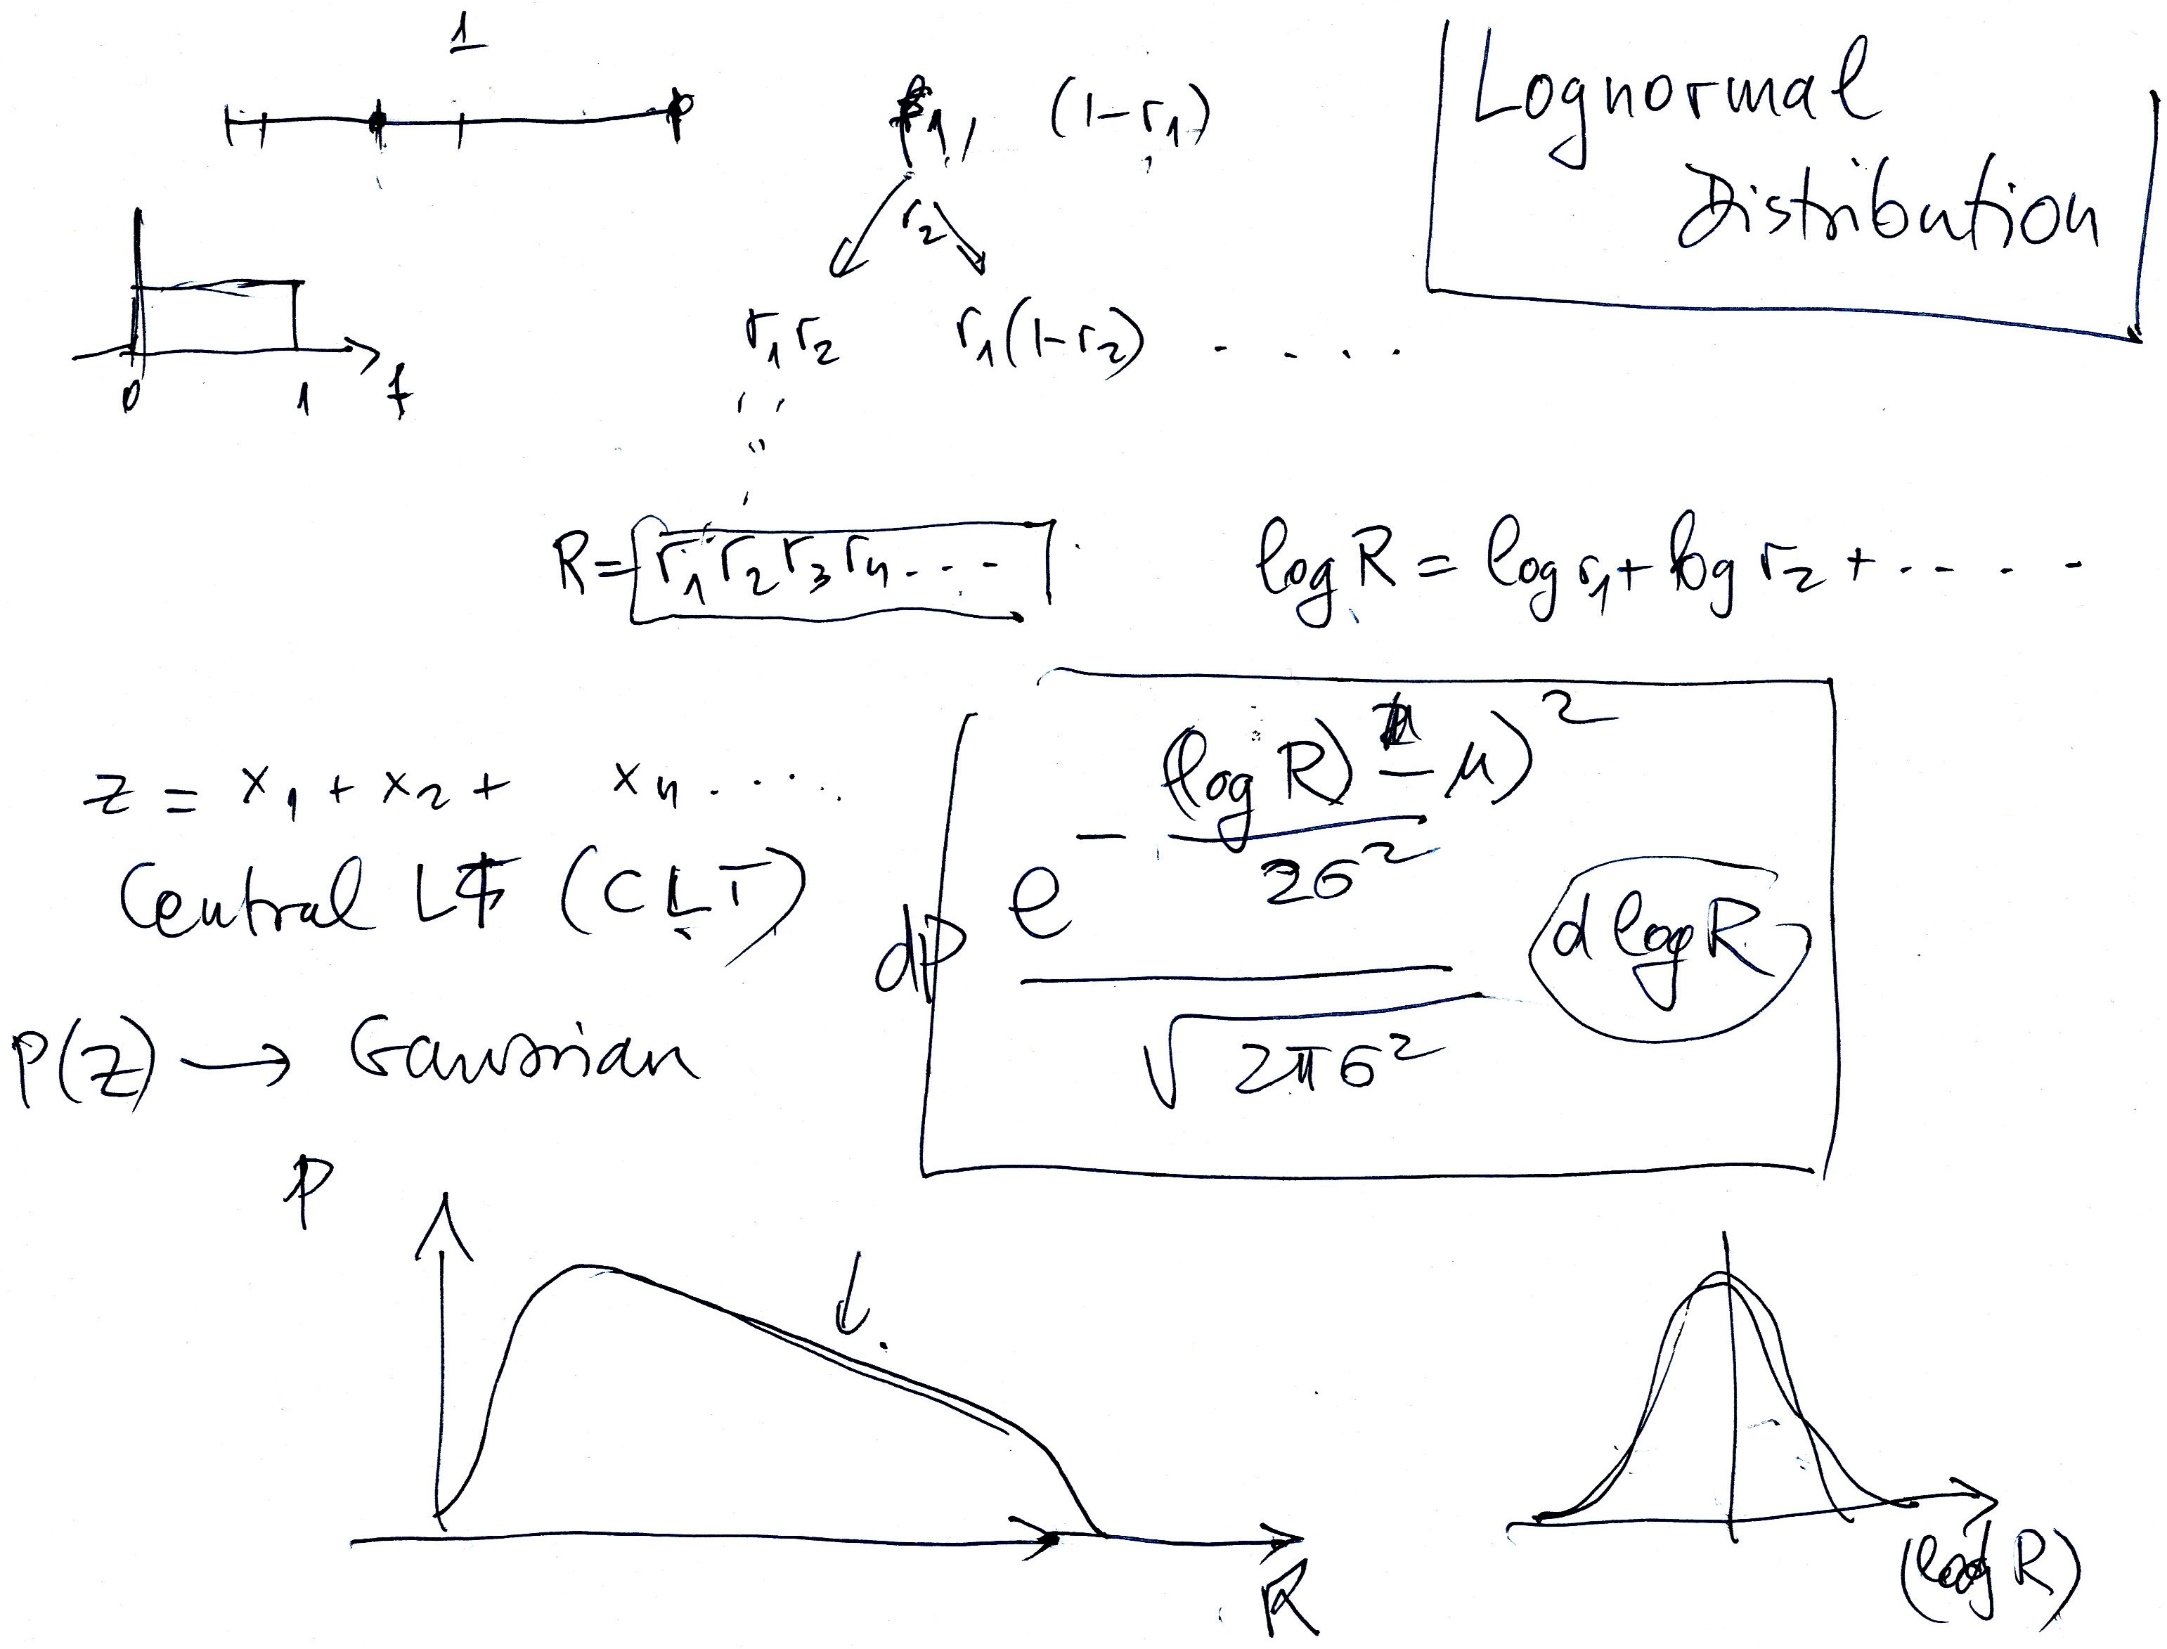 1
r₁, (1-r₁)
Lognormal
Distribution
r₂
0 1
r₁r₂ r₁(1-r₂) . . . . .
R = r₁ r₂ r₃ r₄ . . . log R = log r₁ + log r₂ + . . . . .
z = x₁ + x₂ + x₄ . . . . .
Central LT (CLT)
P(z) → Gaussian
dP e^{-\frac{(log R) - μ)²}{2σ²}} / √2πσ² d log R
P
R
(log R)